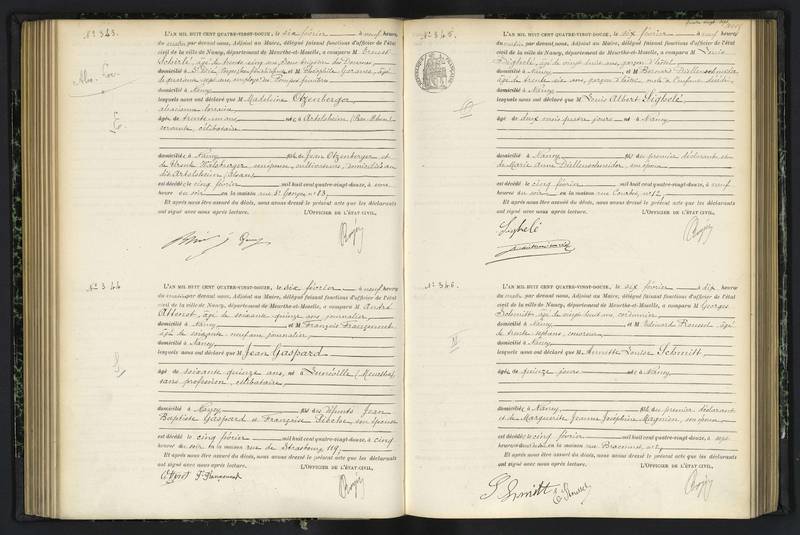 No 343.
L'AN MIL HUIT CENT QUATRE-VINGT-DOUZE, le six février à neuf heures
du matin par devant nous, Adjoint au Maire, délégué faisant fonctions d'officier de l'état
civil de la ville de Nancy, département de Meurthe-et-Moselle, a comparu M. Ernest
âgé de trente cinq ans, Sous brigadier des Douanes,
domicilié à et M Théophile âgé
de quarante sept ans, employé des Pompes funèbres
domicilié à Nancy
lesquels nous ont déclaré que M Madeleine Otzenberger,
alsacienne lorraine
âgée de trente un ans, née à Artolsheim (Bas-Rhin)
servante, célibataire
domiciliée à Nancy fille de Jean Otzenberger et
de Ursule cultivateurs, domiciliés au
dit Artolsheim (Alsace)
est décédée le cinq février mil huit cent quatre-vingt-douze, à onze
heures du soir en la maison rue St Georges no 83,
Et après nous être assuré du décès, nous avons dressé le présent acte que les déclarants
ont signé avec nous après lecture. L'OFFICIER DE L'ÉTAT CIVIL,
No 344
L'AN MIL HUIT CENT QUATRE-VINGT-DOUZE, le six février à neuf heures
du matin par devant nous, Adjoint au Maire, délégué faisant fonctions d'officier de l'état
civil de la ville de Nancy, département de Meurthe-et-Moselle, a comparu M. André
âgé de soixante quinze ans, journalier,
domicilié à Nancy et M François Frangement
âgé de soixante neuf ans, journalier,
domicilié à Nancy
lesquels nous ont déclaré que M Jean Gaspard
âgé de soixante quinze ans, né à Lunéville (Meurthe),
sans profession, célibataire,
domicilié à Nancy fils des défunts Jean
Baptiste Gaspard et Françoise son épouse
est décédé le cinq février mil huit cent quatre-vingt-douze, à cinq
heures du soir en la maison rue de Strasbourg 119,
Et après nous être assuré du décès, nous avons dressé le présent acte que les déclarants
ont signé avec nous après lecture. L'OFFICIER DE L'ÉTAT CIVIL,
No 345.
L'AN MIL HUIT CENT QUATRE-VINGT-DOUZE, le six février à neuf heures
du matin par devant nous, Adjoint au Maire, délégué faisant fonctions d'officier de l'état
civil de la ville de Nancy, département de Meurthe-et-Moselle, a comparu M. Louis
Sighelé, âgé de ans, garçon d'hôtel,
domicilié à Nancy et M Bernard
âgé de trente six ans, garçon d'hôtel, oncle de l'enfant décédé
domicilié à Nancy
lesquels nous ont déclaré que M Louis Albert Sighelé,
âgé de deux mois quatre jours né à Nancy
domicilié à Nancy fils du premier déclarant et
de Marie Anne son épouse
est décédé le cinq février mil huit cent quatre-vingt-douze, à neuf
heures du soir en la maison rue
Et après nous être assuré du décès, nous avons dressé le présent acte que les déclarants
ont signé avec nous après lecture. L'OFFICIER DE L'ÉTAT CIVIL,
Sighelé
No 346.
L'AN MIL HUIT CENT QUATRE-VINGT-DOUZE, le six février à dix heures
du matin, par devant nous, Adjoint au Maire, délégué faisant fonctions d'officier de l'état
civil de la ville de Nancy, département de Meurthe-et-Moselle, a comparu M. Georges
Schmitt, âgé de vingt huit ans, cordonnier,
domicilié à Nancy et M Edouard Roussel, âgé
de trente sept ans,
domicilié à Nancy
lesquels nous ont déclaré que M Annette Louise Schmitt,
âgée de quinze jours née à Nancy
domiciliée à Nancy fille du premier déclarant
et de Marguerite Jeanne Joséphine Magnien, son épouse
est décédée le cinq février mil huit cent quatre-vingt-douze, à sept
heures du soir en la maison rue
Et après nous être assuré du décès, nous avons dressé le présent acte que les déclarants
ont signé avec nous après lecture. L'OFFICIER DE L'ÉTAT CIVIL,
Schmitt